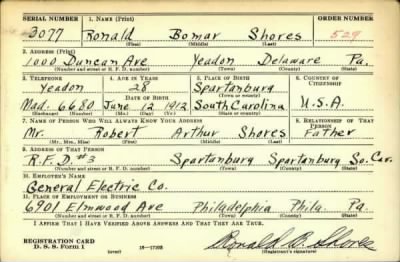 SERIAL NUMBER 1. NAME (Print) ORDER NUMBER
3077 Ronald Bomar Shores 529
(First) (Middle) (Last)
2. ADDRESS (Print)
1000 Duncan Ave Yeadon Delaware Pa.
(Number and street or R. F. D. number) (Town) (County) (State)
3. TELEPHONE 4. AGE IN YEARS 5. PLACE OF BIRTH 6. COUNTRY OF CITIZENSHIP
Yeadon 28 Spartanburg
DATE OF BIRTH (Town or county)
Mad. 6680 June 12 1912 South Carolina U.S.A.
(Exchange) (Number) (Mo.) (Day) (Yr.) (State or country)
7. NAME OF PERSON WHO WILL ALWAYS KNOW YOUR ADDRESS 8. RELATIONSHIP OF THAT PERSON
Mr. Robert Arthur Shores Father
(Mr., Mrs., Miss) (First) (Middle) (Last)
9. ADDRESS OF THAT PERSON
R.F.D. #3 Spartanburg Spartanburg So. Car.
(Number and street or R. F. D. number) (Town) (County) (State)
10. EMPLOYER'S NAME
General Electric Co.
11. PLACE OF EMPLOYMENT OR BUSINESS
6901 Elmwood Ave Philadelphia Phila. Pa.
(Number and street or R. F. D. number) (Town) (County) (State)
I AFFIRM THAT I HAVE VERIFIED ABOVE ANSWERS AND THAT THEY ARE TRUE.
REGISTRATION CARD
D. S. S. Form 1 (over) Ronald B. Shores
(Registrant's signature)